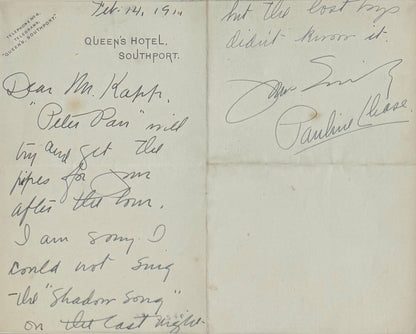 Feb. 14, 191
TELEPHONE No 4.
TELEGRAMS,
"QUEENS, SOUTHPORT."
QUEEN'S HOTEL,
SOUTHPORT.
Dear Mr. Kapp,
"Peter Pan" will
try and get the
pipes for you
after the tour.
I am sorry I
could not sing
the "Shadow Song"
on the last night
but the lost boys
didn't know it.
Yours Sincerely
Pauline Chase.